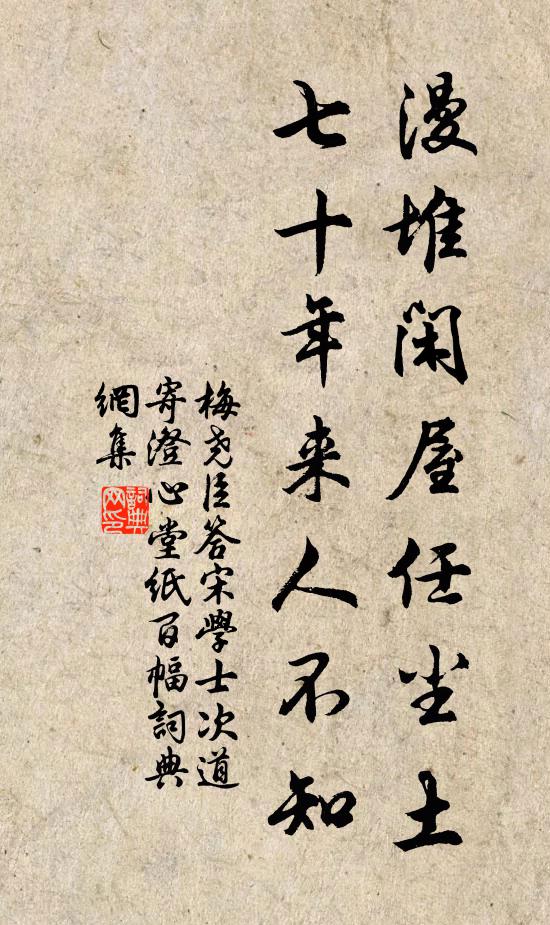 漫堆閑屋任尘土
七十年来人不知
梅尧臣答宋學士次道
寄澄心堂紙百幅詞典
網集
詞典
网印